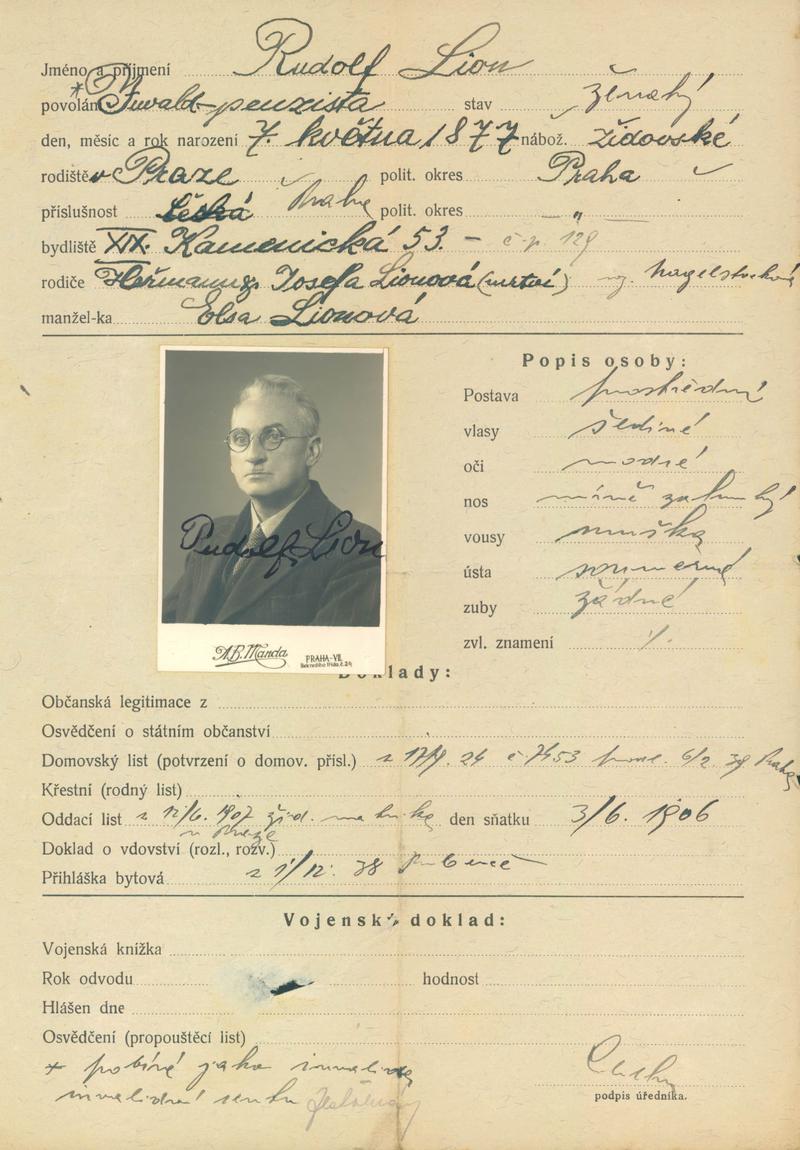 Jméno a příjmení Rudolf Lion
povolání Invalid-penzista stav ženatý
den, měsíc a rok narození 7. května 1877 nábož. židovské
rodiště v Praze polit. okres Praha
příslušnost česká Praha polit. okres — „ —
bydliště XIX. Kamenická 53. – č.p. 129
rodiče Heřmann a Josefa Lionová (mrtví)
manžel-ka Elsa Lionová
Popis osoby:
Postava prostřední
vlasy šedivé
oči modré
nos mírně zahnutý
vousy
ústa souměrná
zuby žádné
zvl. znamení
Rudolf Lion
A.B. Manda PRAHA-VII.
Doklady:
Občanská legitimace z
Osvědčení o státním občanství
Domovský list (potvrzení o domov. přísl.) z
Křestní (rodný list)
Oddací list z 12/6. 1907 žid. matrika den sňatku 3/6. 1906
v Praze
Doklad o vdovství (rozl., rozv.)
Přihláška bytová z 1/12. 38
Vojenský doklad:
Vojenská knížka
Rok odvodu hodnost
Hlášen dne
Osvědčení (propouštěcí list)
pobírá jako invalida
invalidní rentu
podpis úředníka.